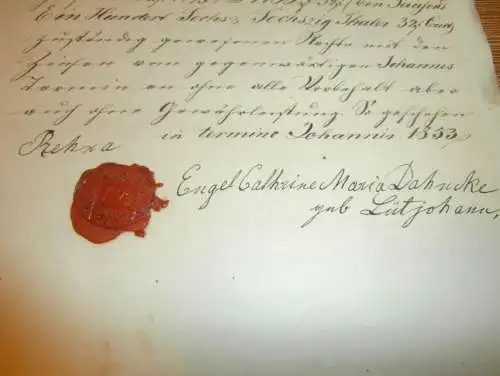 Ein Hundert Sechs u Sechszig Thaler 32ß Cour
zuständig gewesenen Rechte mit den
Zinsen vom gegenwärtigen Johannis
Termin an ohne alle Vorbehalt aber
auch ohne Gewährleistung. So geschehen
in termino Johannis 1853,
Rehna
Engel Cathrine Maria Dahncke
geb Lütjohann,